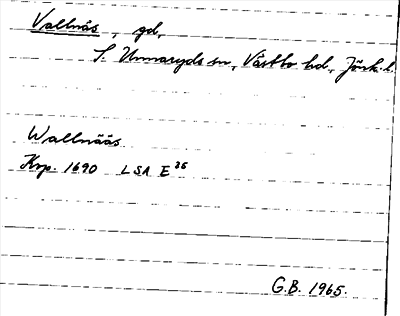 Vallnäs, gd,
S. Unnaryds sn, Västbo hd, Jönk. l.
Wallnääs
Krp. 1690 LSA E 35
G.B. 1965.